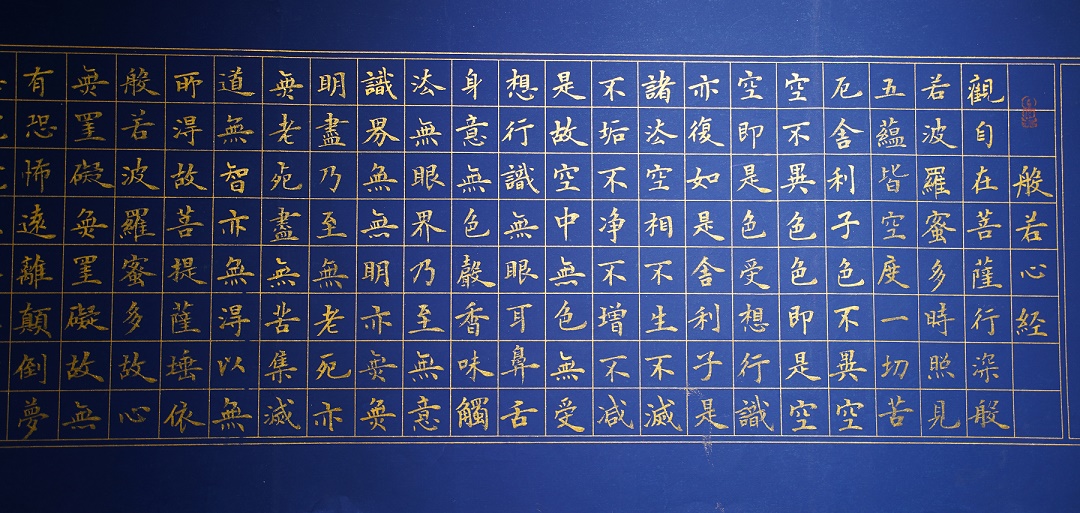 般若心経
觀自在菩薩行深般
若波羅蜜多時照見
五蘊皆空度一切苦
厄舍利子色不異空
空不異色色即是空
空即是色受想行識
亦復如是舍利子是
諸法空相不生不滅
不垢不净不增不减
是故空中無色無受
想行識無眼耳鼻舌
身意無色聲香味觸
法無眼界乃至無意
識界無無明亦無無
明盡乃至無老死亦
無老死盡無苦集滅
道無智亦無得以無
所得故菩提薩埵依
般若波羅蜜多故心
無罣礙無罣礙故無
有恐怖遠離顛倒夢